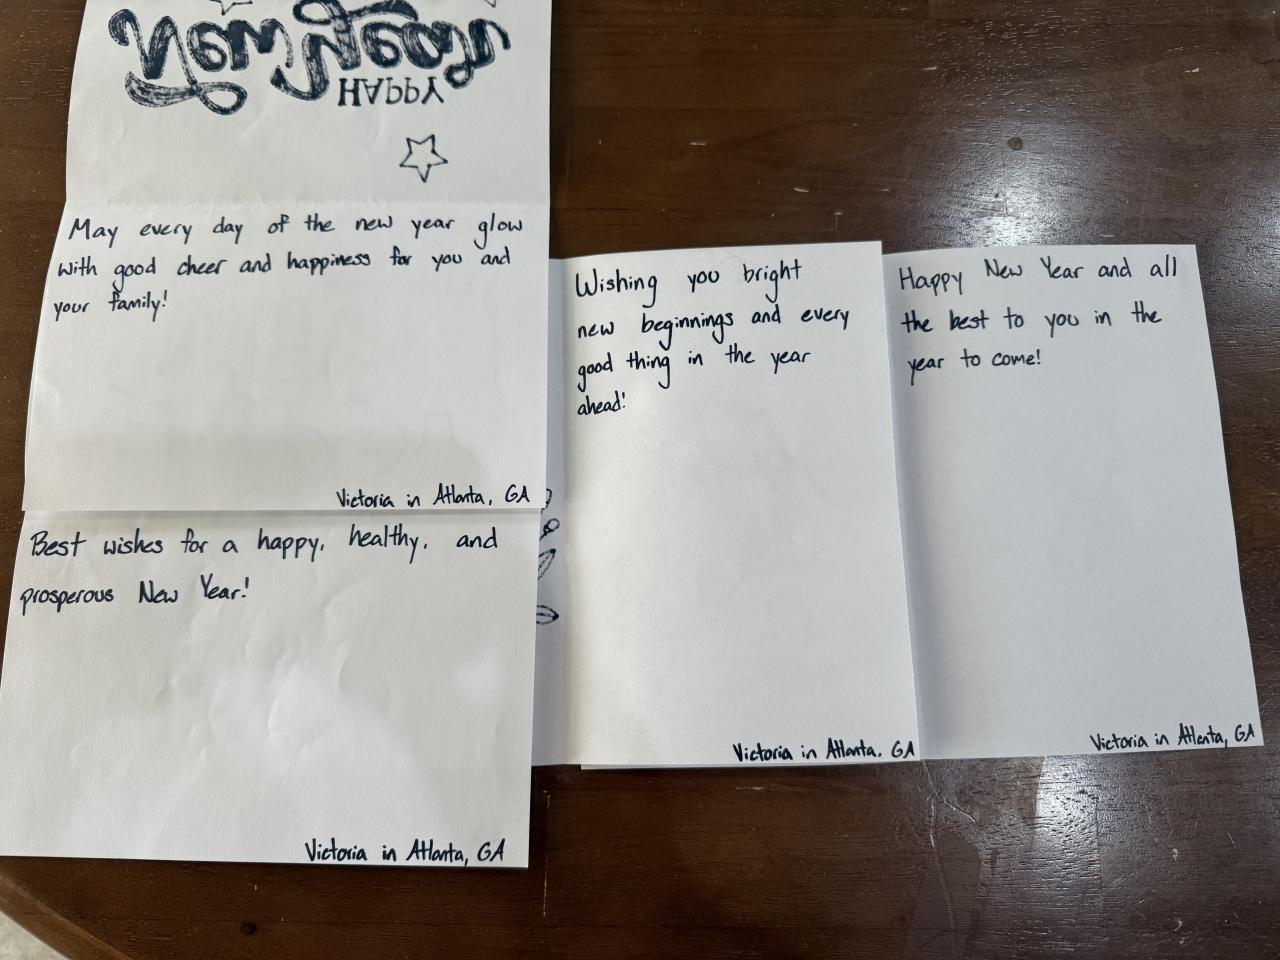 HAPPY
New Year
May every day of the new year glow
with good cheer and happiness for you and
your family!
Victoria in Atlanta, GA
Best wishes for a happy, healthy, and
prosperous New Year!
Victoria in Atlanta, GA
Wishing you bright
new beginnings and every
good thing in the year
ahead!
Victoria in Atlanta, GA
Happy New Year and all
the best to you in the
year to come!
Victoria in Atlanta, GA